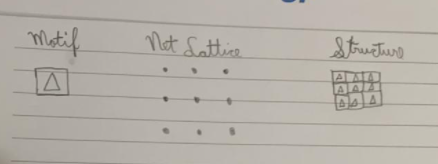 Motif Net Lattice Structure